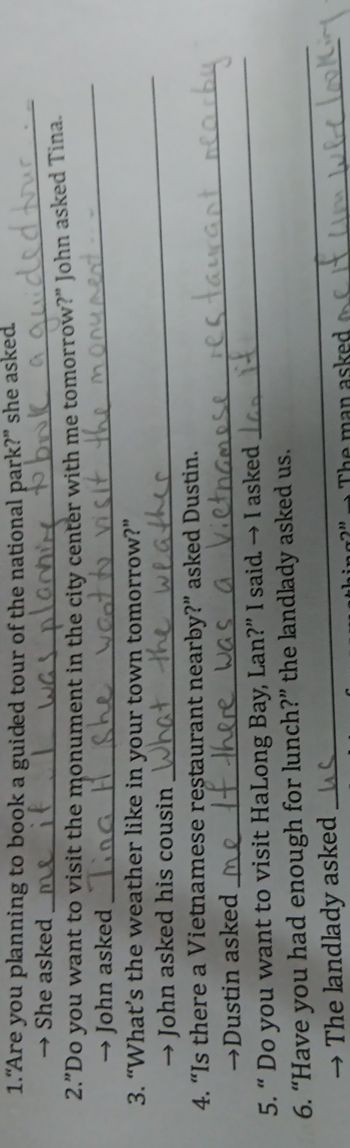 1."Are you planning to book a guided tour of the national park?" she asked.
→ She asked me if I was planning to book a guided tour...
2."Do you want to visit the monument in the city center with me tomorrow?" John asked Tina.
→ John asked Tina if she want to visit the monument...
3. "What's the weather like in your town tomorrow?"
→ John asked his cousin What the weather
4. "Is there a Vietnamese restaurant nearby?" asked Dustin.
→Dustin asked me If there was a Vietnamese restaurant nearby
5. " Do you want to visit HaLong Bay, Lan?" I said. → I asked Lan if
6. "Have you had enough for lunch?" the landlady asked us.
→ The landlady asked us
→ The man asked me if were looking